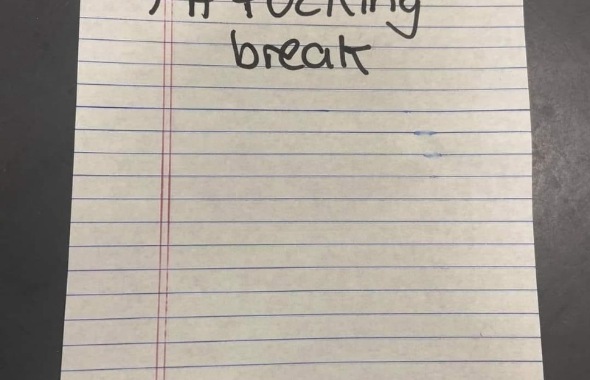 fucking
break